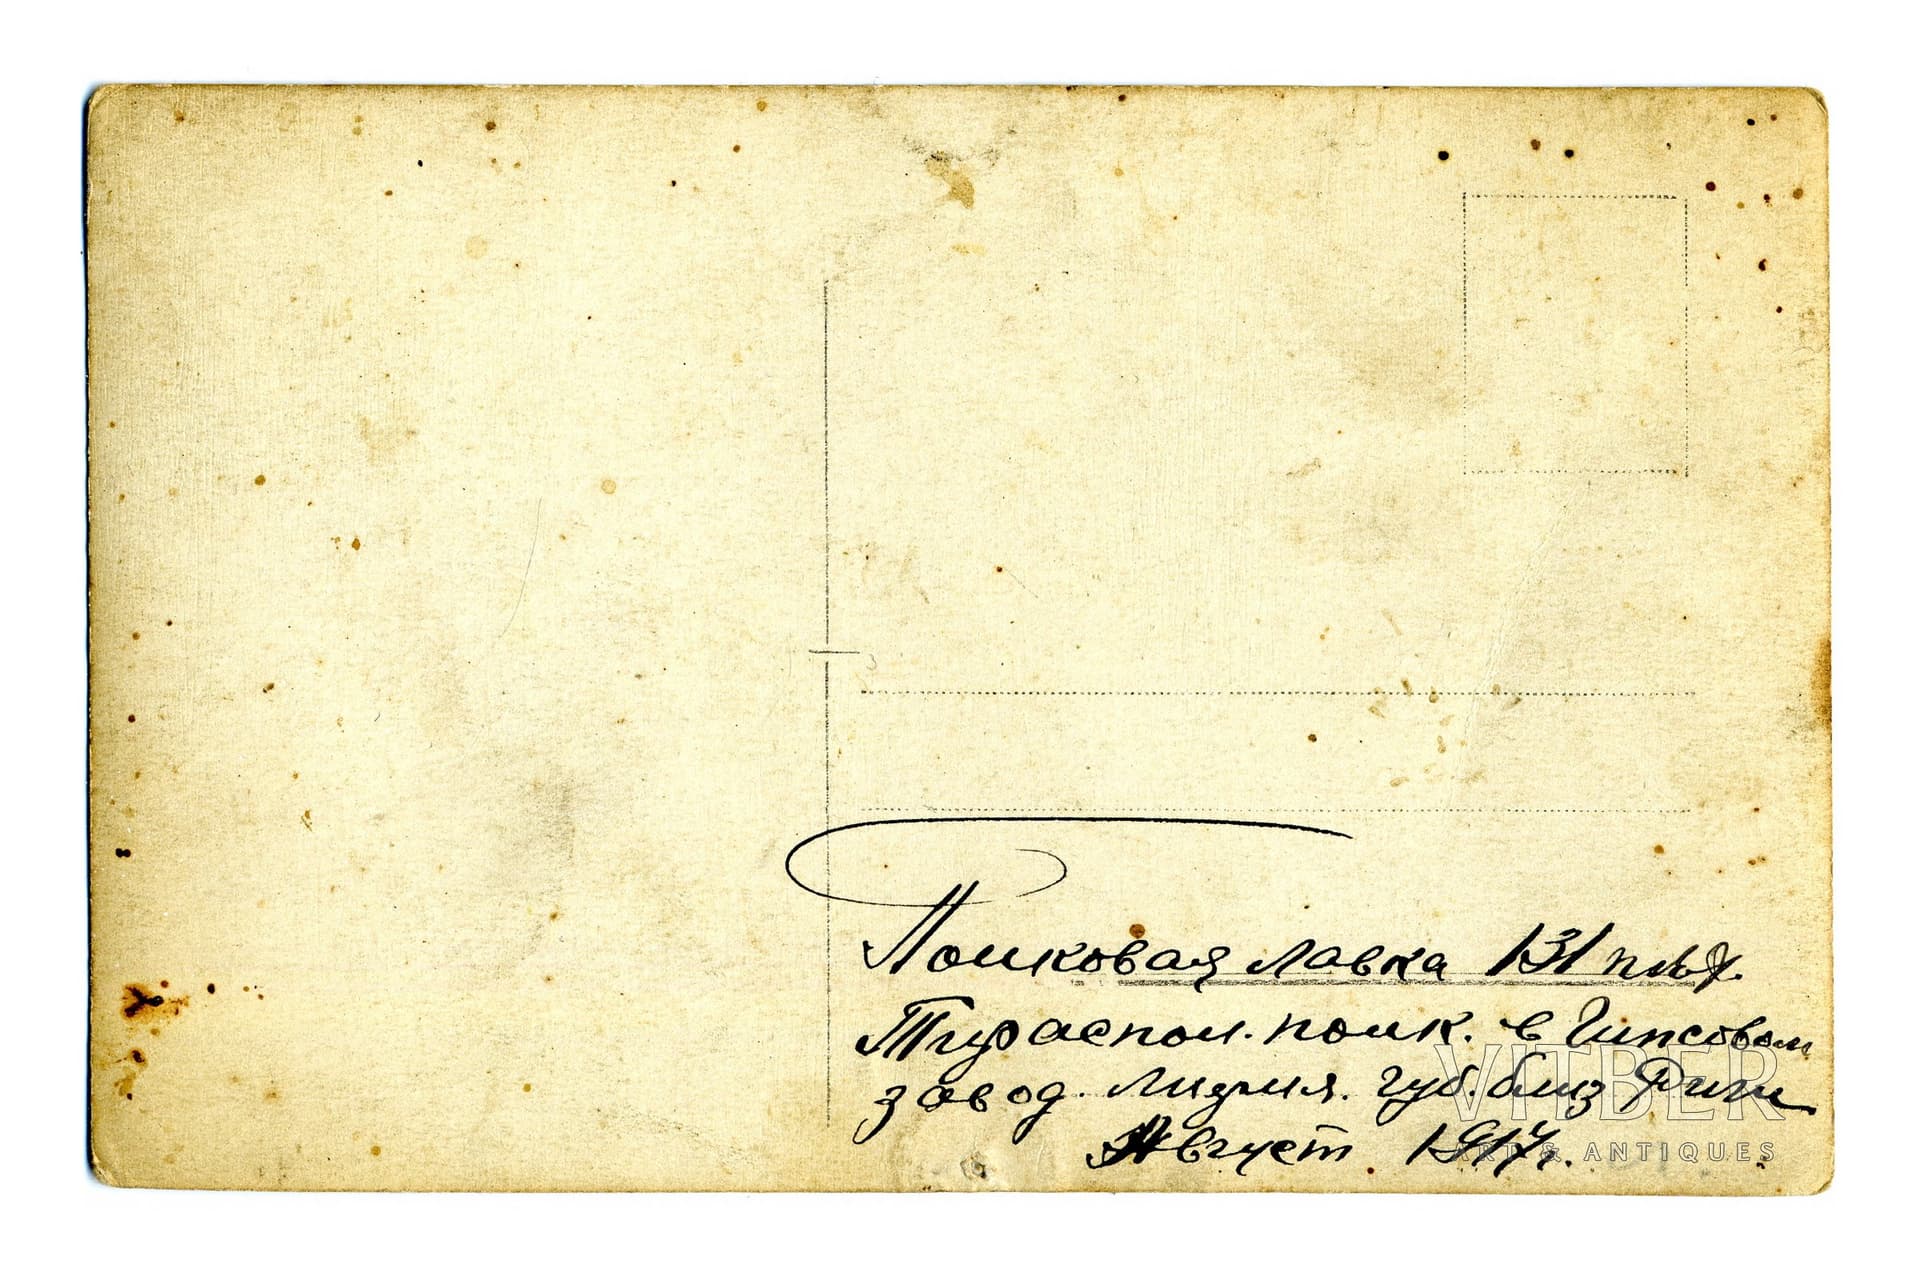 Полковая лавка 131 пех.
Тираспол. полк. в Гипсовом
завод. Лифля. губ. близ Риги
Август 1917г.
VITBER
ART & ANTIQUES